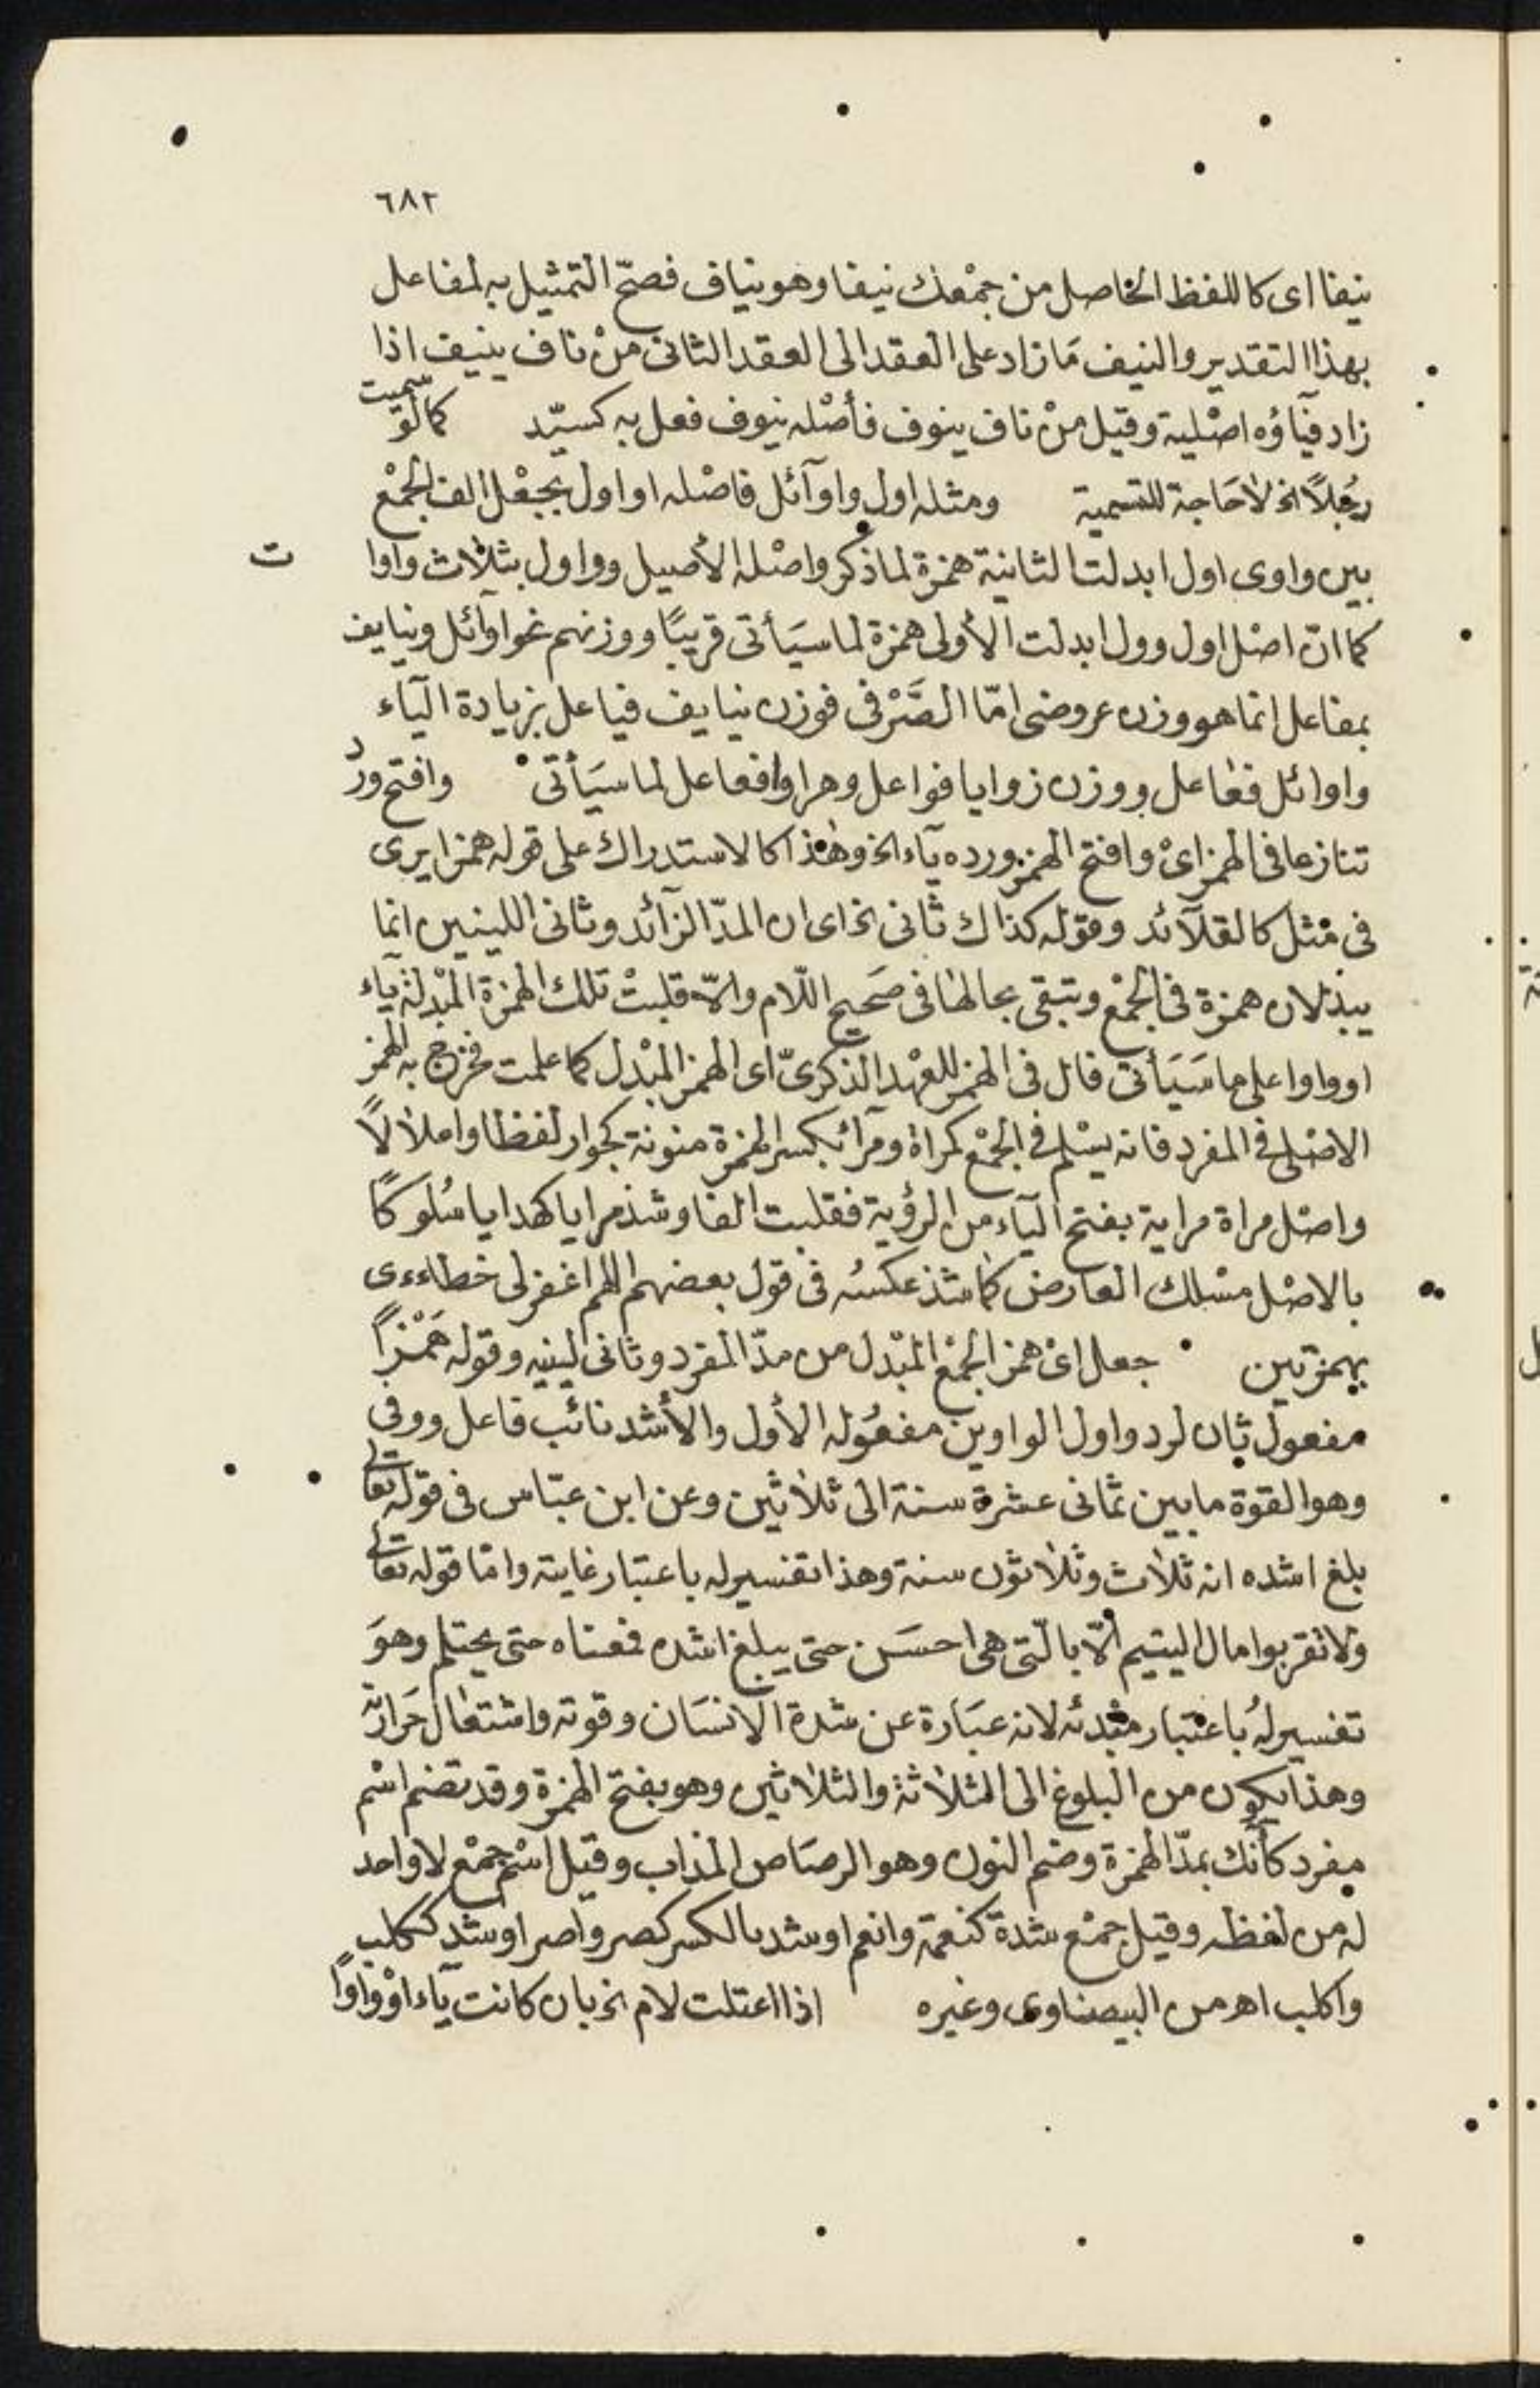 ٦٨٢
نيفا اى كاللفظ الحاصل من جمعك نيفا وهو نياف فصحّ التمثيل به لمفاعل
بهذا التقدير والنيف مَا زاد على العقد الى العقد الثانى منْ ناف ينيف اذا
زاد فيآؤه اصْلية وقيل منْ ناف ينوف فأصْله نيوف فعل به كسيّد كما لوْ سميت
رجُلًا الخ لاحَاجة للتسمية ومثله اول واوآئل فاصْله اواول بجعْل الف الجمْع
بين واوى اول ابدلت الثانية همزة لما ذكر واصْله الأصيل وواول بثلاث واوات
كما انّ اصْل اول وول ابدلت الأولى همزة لما سيَأتى قريبًا ووزنهم نحو اوآئل ونيايف
بمفاعل انما هو وزن عروضى امّا الصَّرْفى فوزن نيايف فياعل بزيادة اليآء
واوائل فعاعل ووزن زوايا فواعل وهراوا فعاعل لما سيَأتى وافتح وردّ
تنازعا فى الهمز اىْ وافتح الهمز ورده يآء الخ وهذا كالاستدراك على قوله همزا يرى
فى مثل كالقلآئد وقوله كذاك ثانى الخ اى ان المدّ الزآئد وثانى اللينين انما
يبدلان همزة فى الجمْع وتبقى بحالها فى صَحيح اللّام والّا قلبتْ تلك الهمزة المبْدلة يآء
او واوا على ما سَيَأتى فال فى الهمز للعهْد الذكرىّ اى الهمز المبْدل كما علمت فخرج به الهمز
الاصْلى فى المفرد فانه يسْلم فى الجمْع كمراة ومرآئ بكسر الهمزة منونة كجوار لفظا واعلالًا
واصْل مراة مراية بفتح اليآء من الرؤية فقلبت الفا وشذ مرايا كهدايا سُلوكًا
بالاصْل مسْلك العارض كما شذ عكسُه فى قول بعضهم اللهم اغفر لى خطاءءى
بهمزتين جعل اىْ همز الجمْع المبْدل من مدّ المفرد وثانى لينيه وقوله هَمْزًا
مفعول ثان لرد واول الواوين مفعُوله الأول والأشد نائب فاعل ووفى
وهو القوة ما بين ثمانى عشرة سنة الى ثلاثين وعن ابن عبّاس فى قوله تعالى
بلغ اشده انه ثلاث وثلاثون سنة وهذا تفسير له باعتبار غايته وامّا قوله تعالى
ولا تقربوا مال اليتيم الّا بالّتى هى احسَن حتى يبلغ اشده فمعناه حتى يحتلم وهوَ
تفسير لهُ باعتبار مبْدئه لانه عبَارة عن شدة الانسَان وقوته واشتعال حَرارته
وهذا يكون من البلوغ الى الثلاثة والثلاثين وهو بفتح الهمزة وقد تضم اسْم
مفرد كآنك بمدّ الهمزة وضم النون وهو الرصَاص المذاب وقيل اسْم جمْع لا واحد
له من لفظه وقيل جمْع شدة كنعمة وانعم او شد بالكسر كصر واصر او شد ككلب
واكلب اهـ من البيضاوى وغيره اذا اعتلت لام الخ بان كانت يآء اوْ واوًا